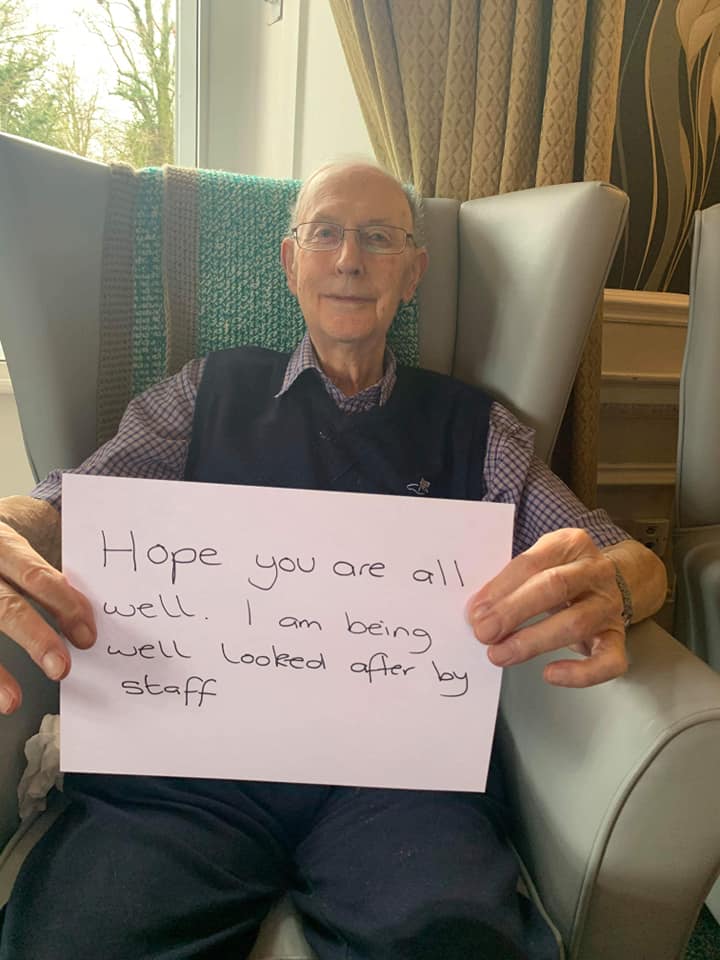 Hope you are all
well. I am being
well looked after by
staff